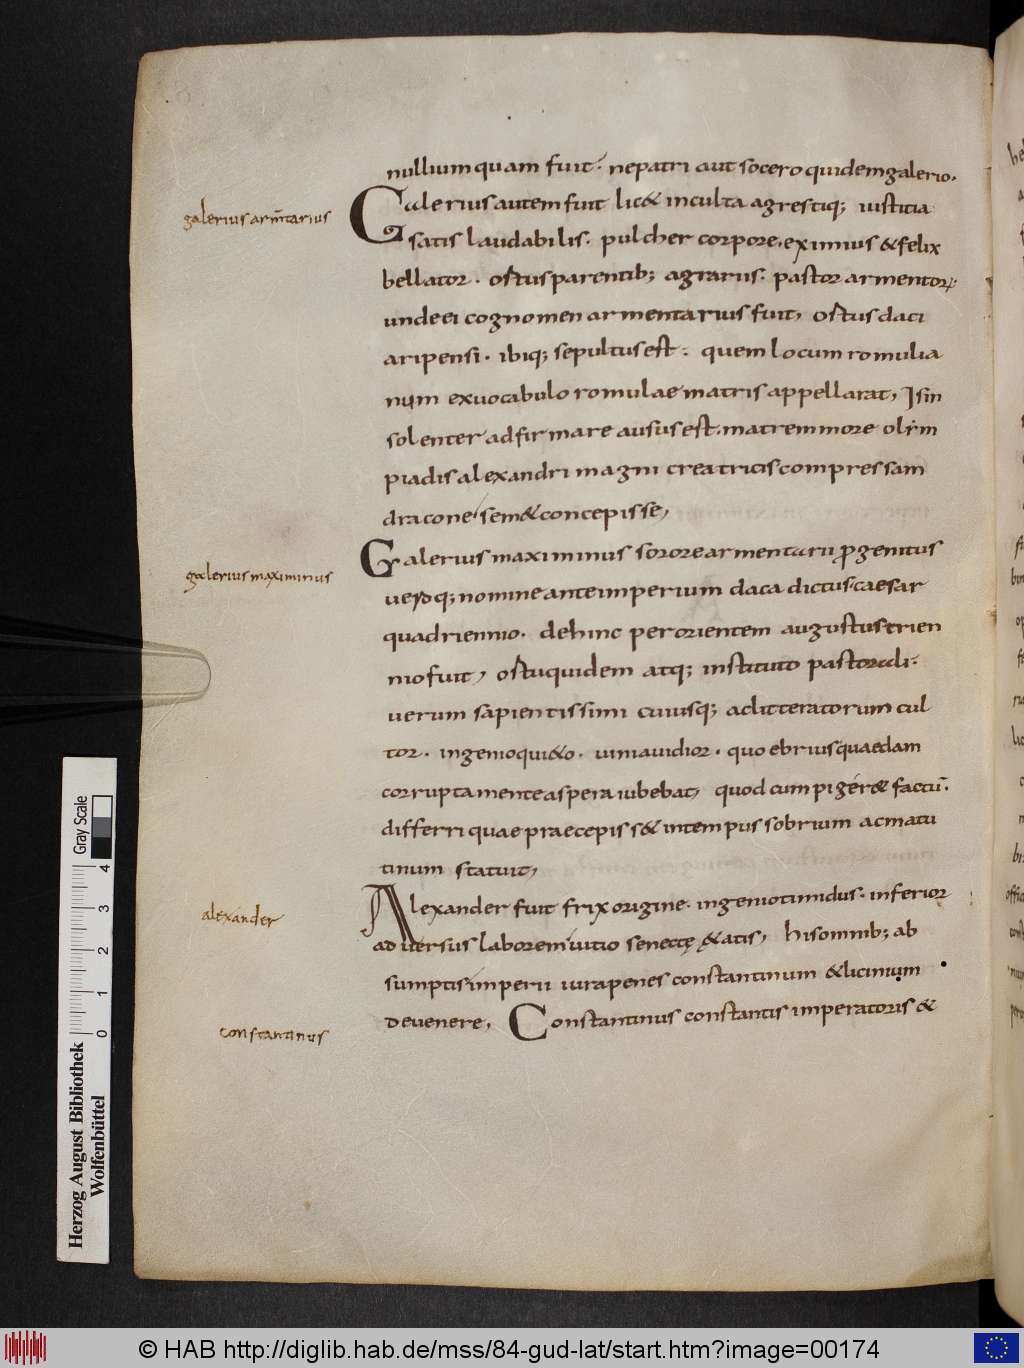 nulliumquam fuit. nepatri aut socero quidemgalerio.
galerius arm̄tarius
Galerius autem fuit lic& inculta agrestiq; iustitia
satis laudabilis. pulcher corpore, eximius & felix
bellator. ortus parentib; agrarus. pastor armentorꝝ
unde ei cognomen armentarius fuit, ortus daci
aripensi. ibiq; sepultus est. quem locum romulia
num exuocabulo romulae matris appellarat, Isin
solenter adfirmare ausus est, matrem more olẏm
piadis alexandri magni creatricis compressam
dracone sem& concepisse,
galerius maximinus
Galerius maximinus sorore armentarii ꝓgenitus
ueroq; nomine ante imperium daca dictus caesar
quadriennio. dehinc per orientem augustus trien
nio fuit, ortu quidem atq; instituto pastorali.
uerum sapientissimi cuiusq; ac litteratorum cul
tor. ingenio qui&o. uini auidior. quo ebrius quaedam
corrupta mente aspera iubebat, quod cum piger& factū.
differri quae praecepiss& intempus sobrium ac matu
tinum statuit,
alexander
Alexander fuit frix origine. ingenio timidus. inferior
aduersus laborem uitio senectę &atis, his omnib; ab
sumptis imperii iura penes constantinum & licinium
deuenere, Constantinus constantis imperatoris &
constantinus
Herzog August Bibliothek
Wolfenbüttel
Gray Scale
0 1 2 3 4
© HAB http://diglib.hab.de/mss/84-gud-lat/start.htm?image=00174